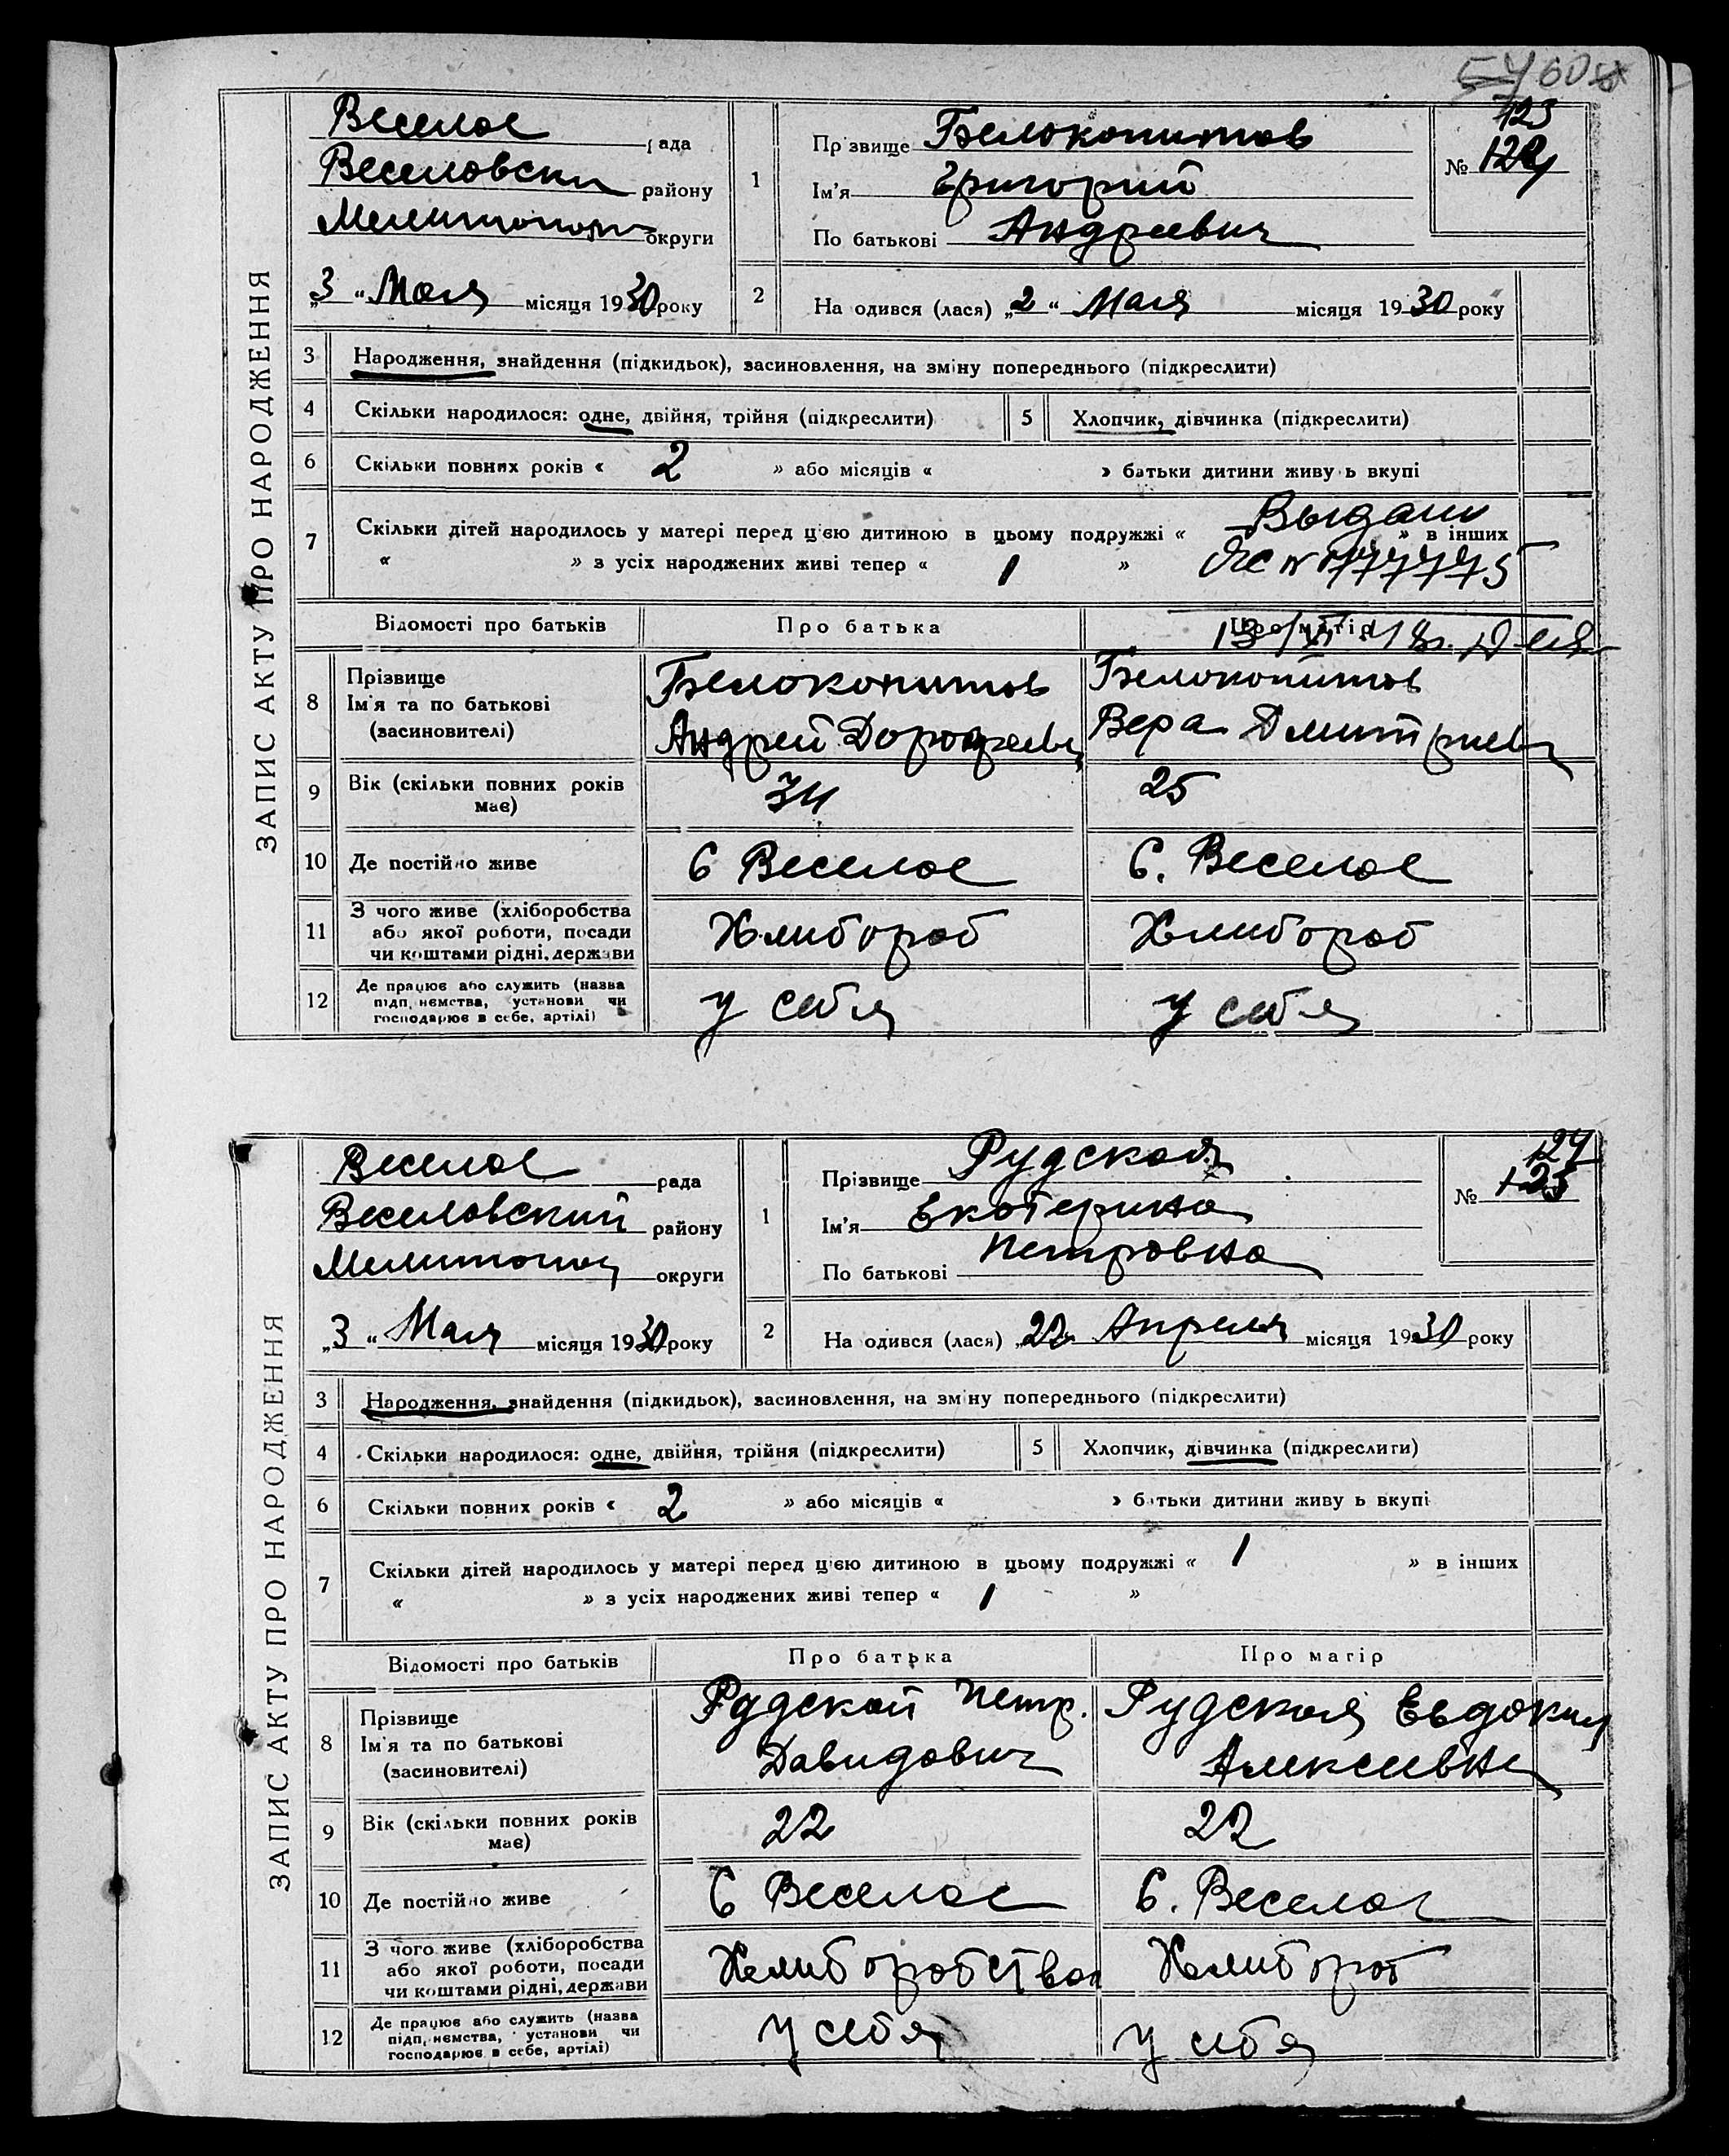 60
ЗАПИС АКТУ ПРО НАРОДЖЕННЯ
Веселое рада
Веселовски району
округи
„3“ Мая місяця 1930 року
1
Пр звище Белокопитов
Ім'я Григорий
По батькові Андреевич
123
№ 124
2
На одився (лася) „2“ Мая місяця 1930 року
3 Народження, знайдення (підкидьок), засиновлення, на зміну попереднього (підкреслити)
4 Скільки народилося: одне, двійня, трійня (підкреслити)
5 Хлопчик, дівчинка (підкреслити)
6 Скільки повних років « 2 » або місяців « » батьки дитини живу ь вкупі
7 Скільки дітей народилось у матері перед цією дитиною в цьому подружжі « » в інших
« » з усіх народжених живі тепер « 1 »
Выдано
Відомості про батьків Про батька Про матір
8 Прізвище
Ім'я та по батькові
(засиновителі)
Белокопитов
Андрей Дорофеевич
Белокопитов
Вера Дмитриев
9 Вік (скільки повних років має) 34 25
10 Де постійно живе С Веселое С. Веселое
11 З чого живе (хліборобства
або якої роботи, посади
чи коштами рідні, держави
Хлибороб Хлибороб
12 Де працює або служить (назва
підп, немства, установи чи
господарює в себе, артілі)
у себя у себя
ЗАПИС АКТУ ПРО НАРОДЖЕННЯ
Веселое рада
Веселовский району
Мелитопол округи
„3“ Мая місяця 1930 року
1
Прізвище Рудская
Ім'я Екатерина
По батькові Петровна
124
№ 125
2
На одився (лася) „22“ Апреля місяця 1930 року
3 Народження, знайдення (підкидьок), засиновлення, на зміну попереднього (підкреслити)
4 Скільки народилося: одне, двійня, трійня (підкреслити)
5 Хлопчик, дівчинка (підкреслити)
6 Скільки повних років « 2 » або місяців « » батьки дитини живу ь вкупі
7 Скільки дітей народилось у матері перед цією дитиною в цьому подружжі « 1 » в інших
« » з усіх народжених живі тепер « 1 »
Відомості про батьків Про батька Про матір
8 Прізвище
Ім'я та по батькові
(засиновителі)
Рудской Петр.
Давидович
Рудская Евдокия
Алексеевна
9 Вік (скільки повних років має) 22 22
10 Де постійно живе С Веселое С. Веселое
11 З чого живе (хліборобства
або якої роботи, посади
чи коштами рідні, держави
Хлиборобствол Хлибороб
12 Де працює або служить (назва
підп, немства, установи чи
господарює в себе, артілі)
у себя у себя